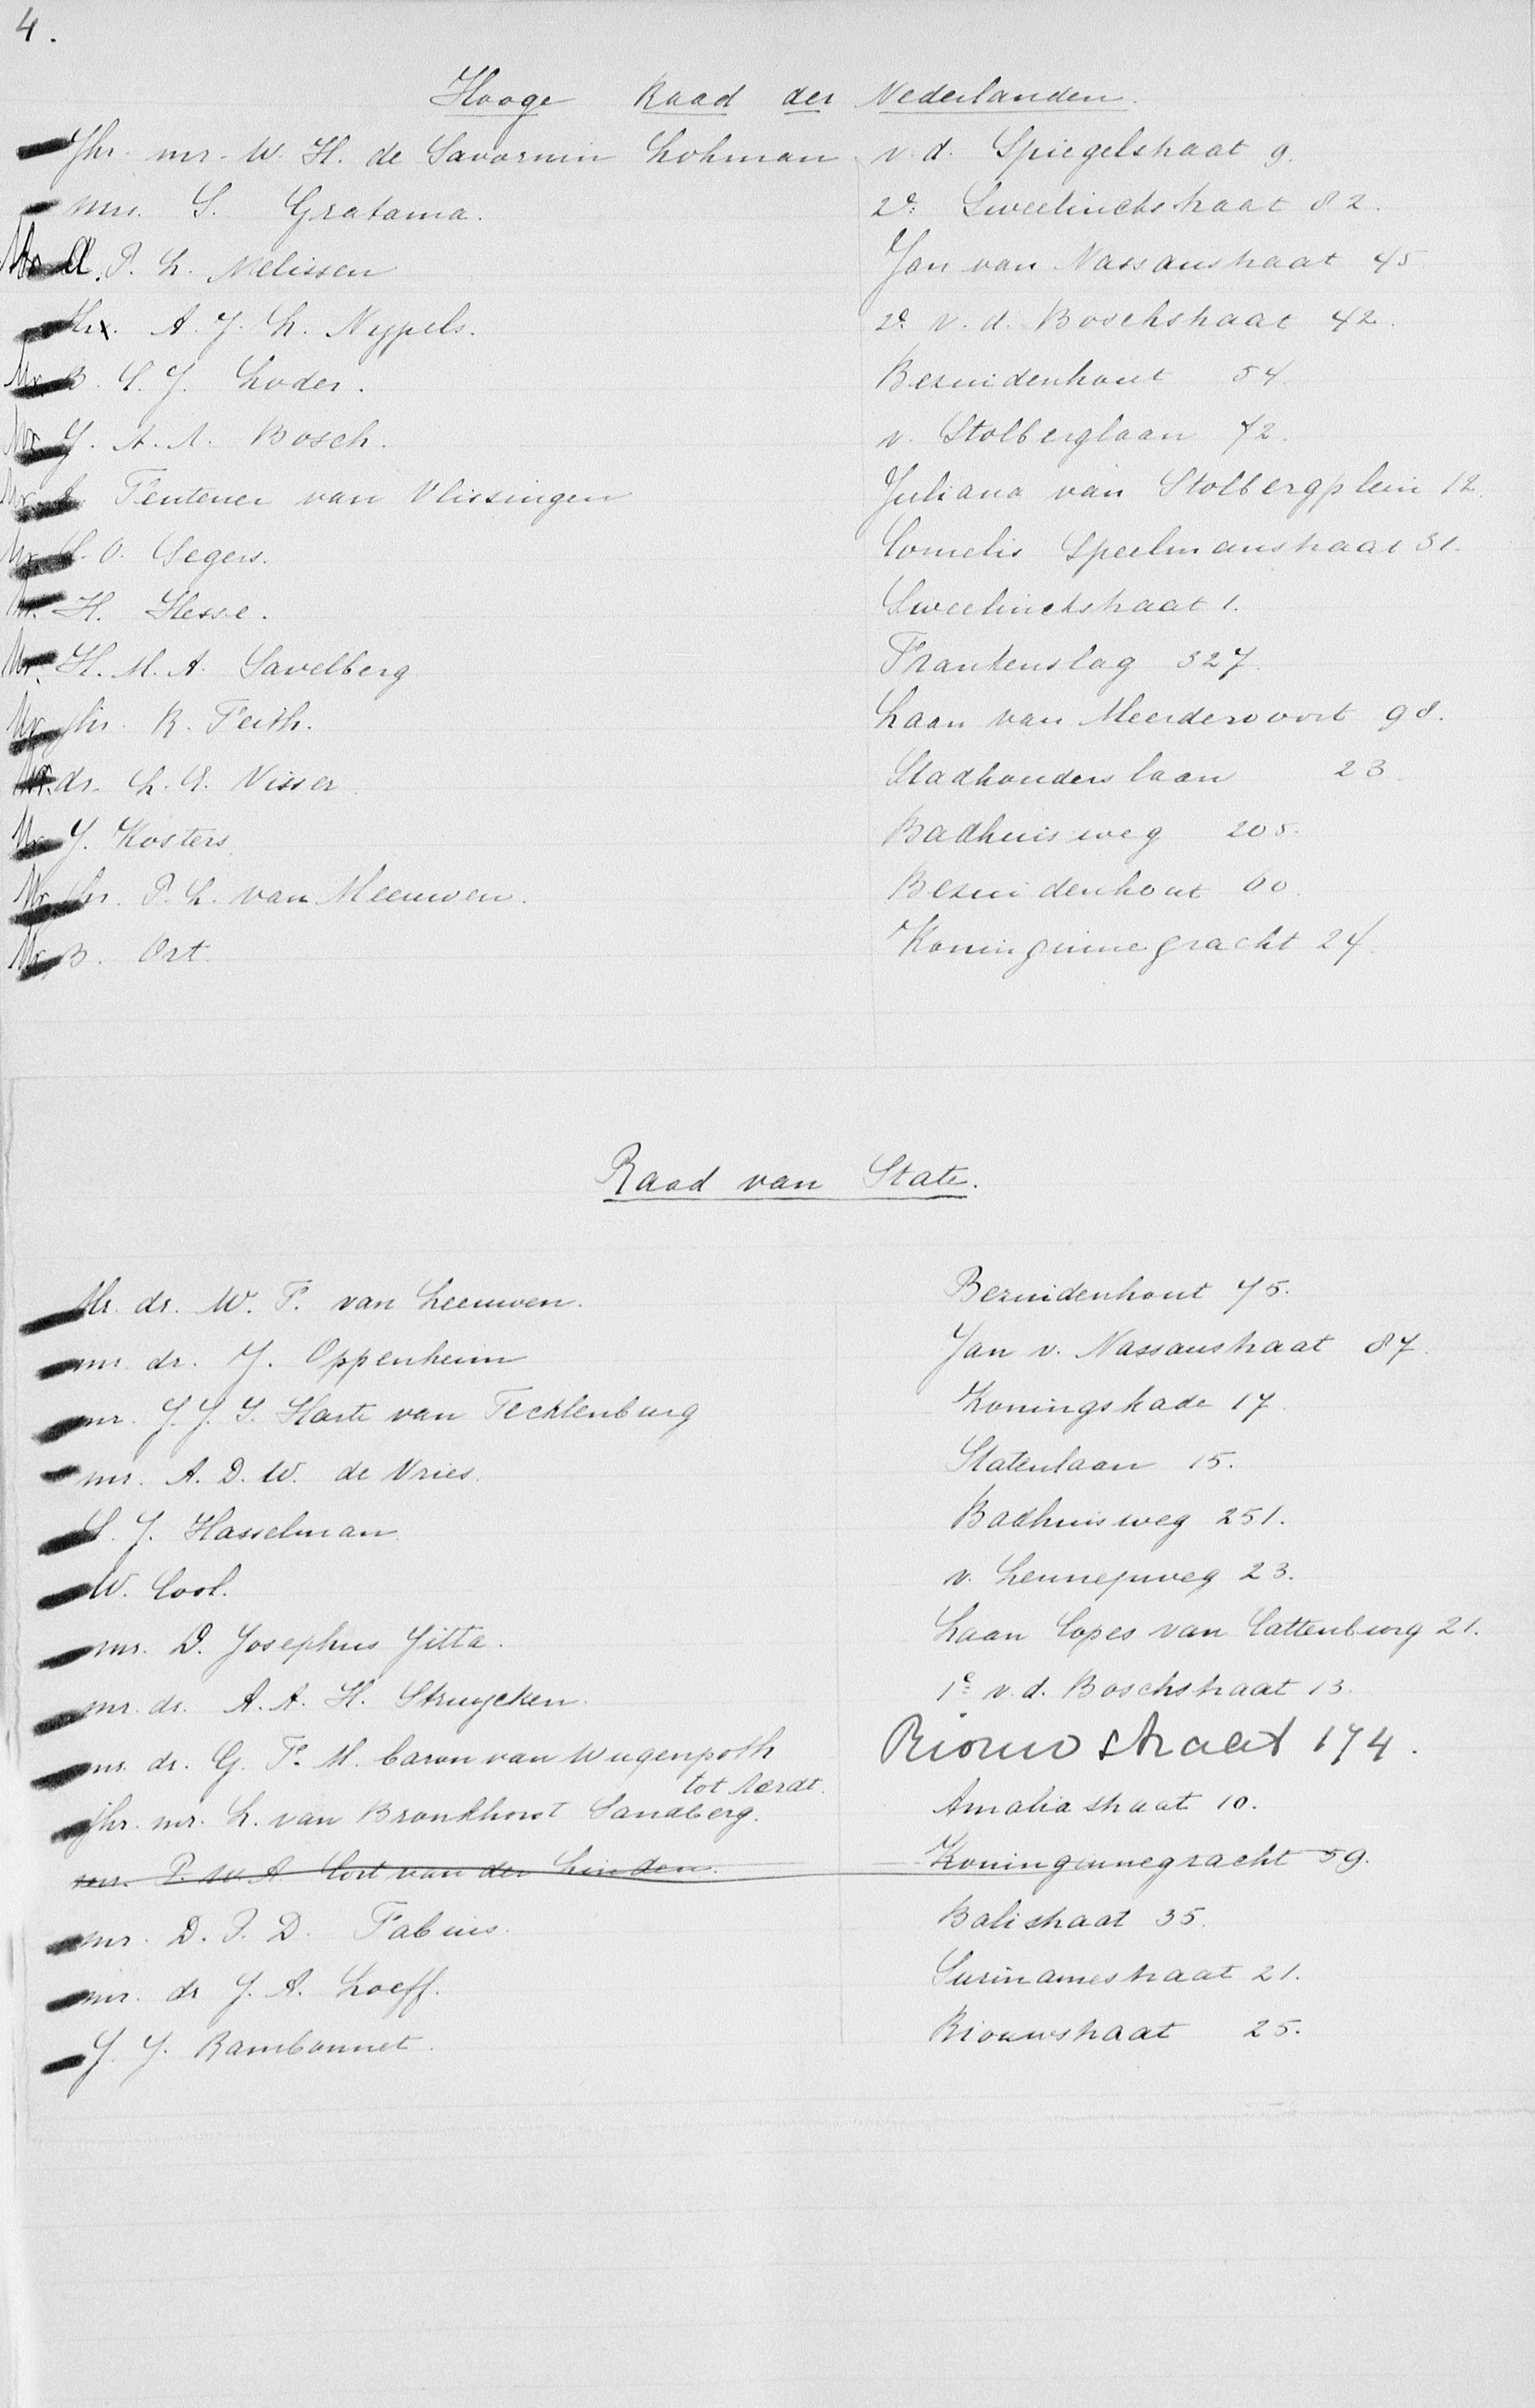 4.
Hooge Raad der Nederlanden.
Jhr. mr. W. H. de Savornin Lohman v. d. Spiegelstraat 9.
mr. S. Gratama. 2e. Sweelinckstraat 82.
Mr A. P. L. Nelissen Jan van Nassaustraat 45
Mr. A. J. L. Nypels. 2e. v. d. Boschstraat 42.
Mr. B. C. J. Loder. Bezuidenhout 54
Mr J. A. A. Bosch. v. Stolberglaan 72.
Mr Fentener van Vlissingen Juliana van Stolbergplein 12.
Mr C. O. Segers. Cornelis Speelmanstraat 31.
Mr. H. Hesse. Sweelinckstraat 1.
Mr. H. M. A. Savelberg Frankenslag 327.
Mr jhr. R. Feith. Laan van Meerdervoort 98.
Mr. dr. L. E. Visser. Stadhouderslaan 23.
Mr J. Kosters. Badhuisweg 205.
Mr jhr. P. L. van Meeuwen. Bezuidenhout 60.
Mr B. Ort. Koninginnegracht 24.
Raad van State.
Mr. dr. W. F. van Leeuwen. Bezuidenhout 75.
mr. dr. J. Oppenheim Jan v. Nassaustraat 87.
mr. J. J. I. Harte van Tecklenburg Koningskade 17.
mr. A. D. W. de Vries. Statenlaan 15.
C. J. Hasselman. Badhuisweg 251.
W. Cool. v. Lennepweg 23.
mr. D. Josephus Jitta. Laan Copes van Cattenburg 21.
mr. dr. A. A. H. Struycken. 1e v. d. Boschstraat 13.
mr. dr. G. F. M. baron van Wijgenpoth Riouwstraat 174.
tot Aerdt.
jhr. mr. L. van Bronkhorst Sandberg. Amaliastraat 10.
mr. P. W. A. Cort van der Linden. Koninginnegracht 59.
mr. D. P. D. Fabius. Balistraat 35.
mr. dr J. A. Loeff. Surinamestraat 21.
J. J. Rambonnet. Riouwstraat 25.